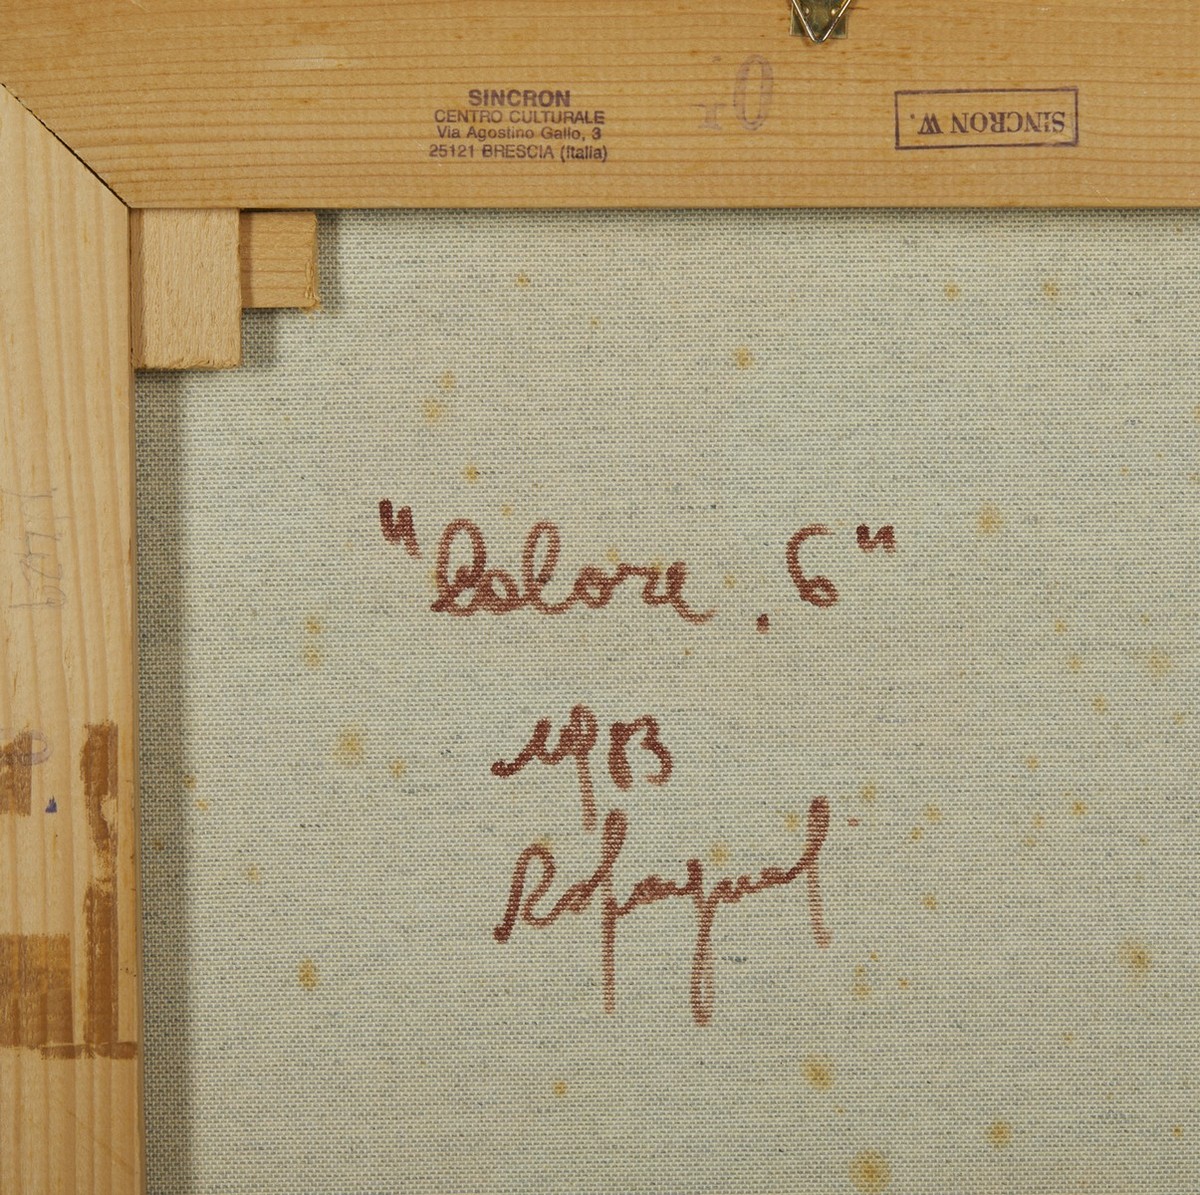 SINCRON
CENTRO CULTURALE
Via Agostino Gallo, 3
25121 BRESCIA (Italia)
10
SINCRON W.
"Colore. 6"
1983